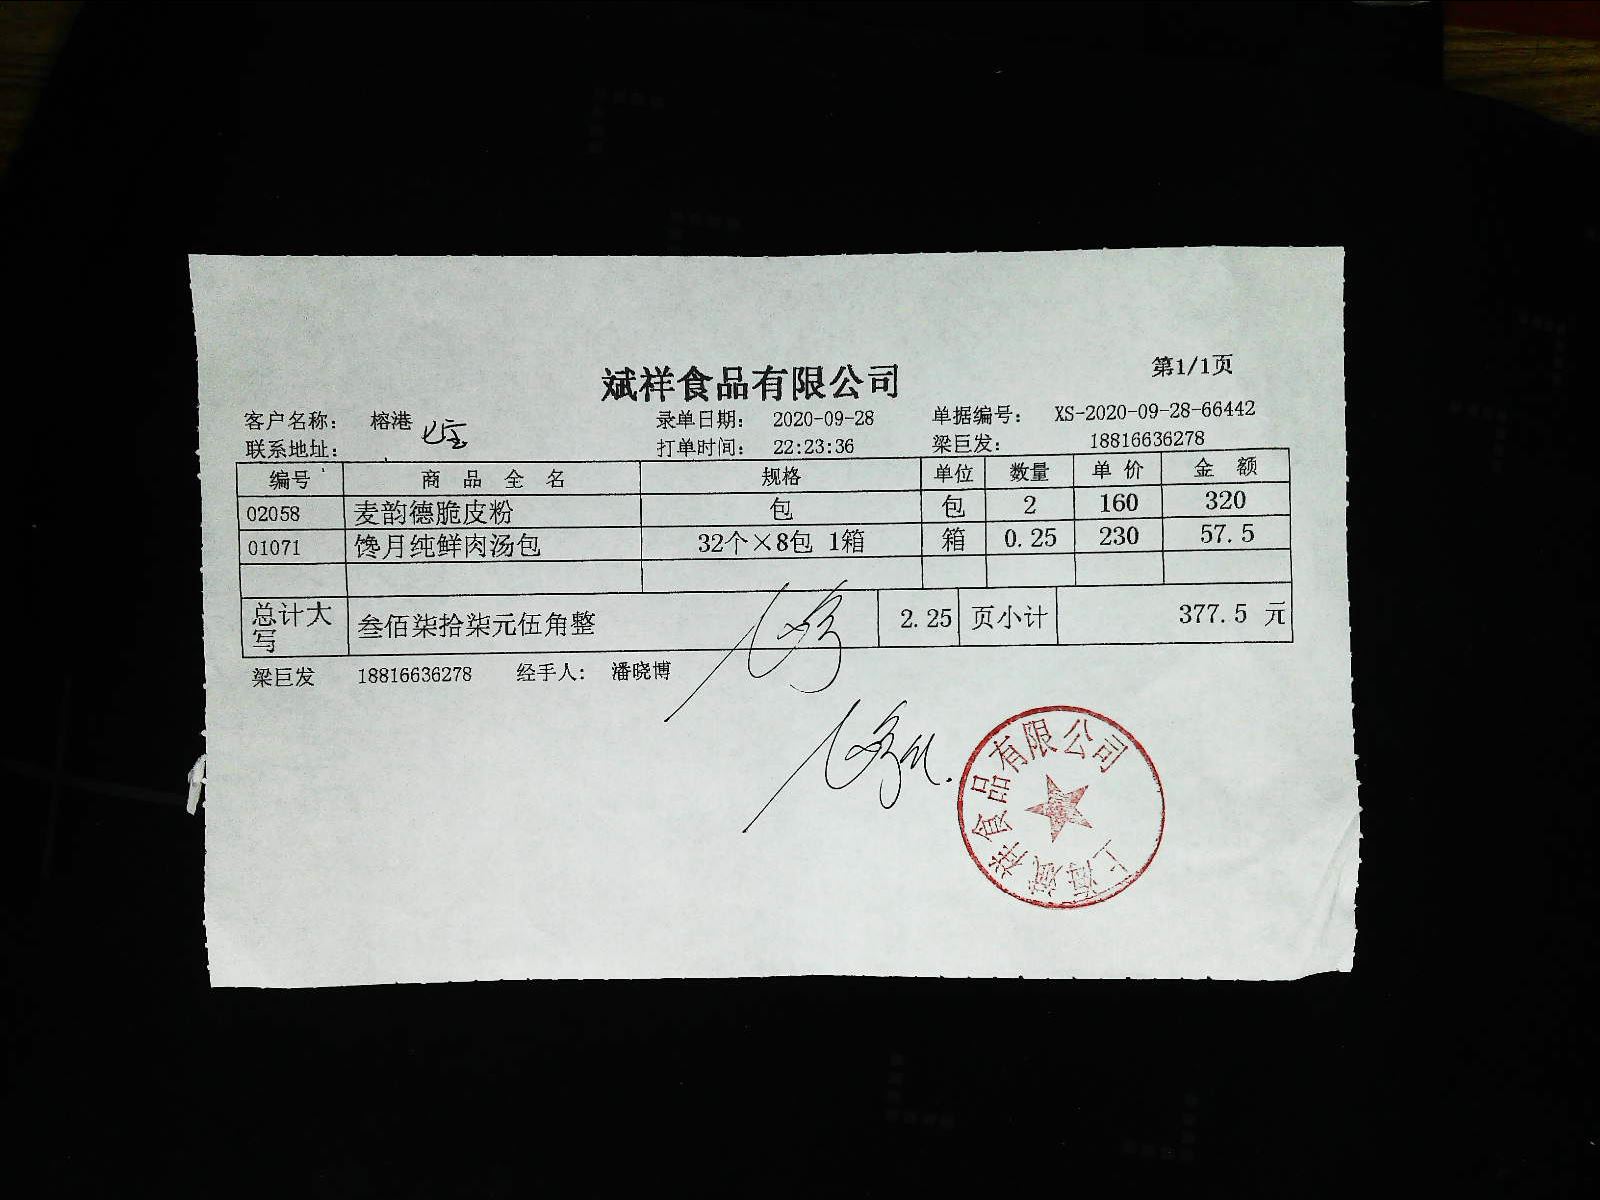 第1/1页
斌祥食品有限公司
客户名称： 榕港 七宝 录单日期： 2020-09-28 单据编号： XS-2020-09-28-66442
联系地址： 打单时间： 22:23:36 梁巨发： 18816636278
编号 商品全名 规格 单位 数量 单价 金额
02058 麦韵德脆皮粉 包 包 2 160 320
01071 馋月纯鲜肉汤包 32个×8包 1箱 箱 0.25 230 57.5
总计大写 叁佰柒拾柒元伍角整 2.25 页小计 377.5 元
梁巨发 18816636278 经手人： 潘晓博
上海斌祥食品有限公司